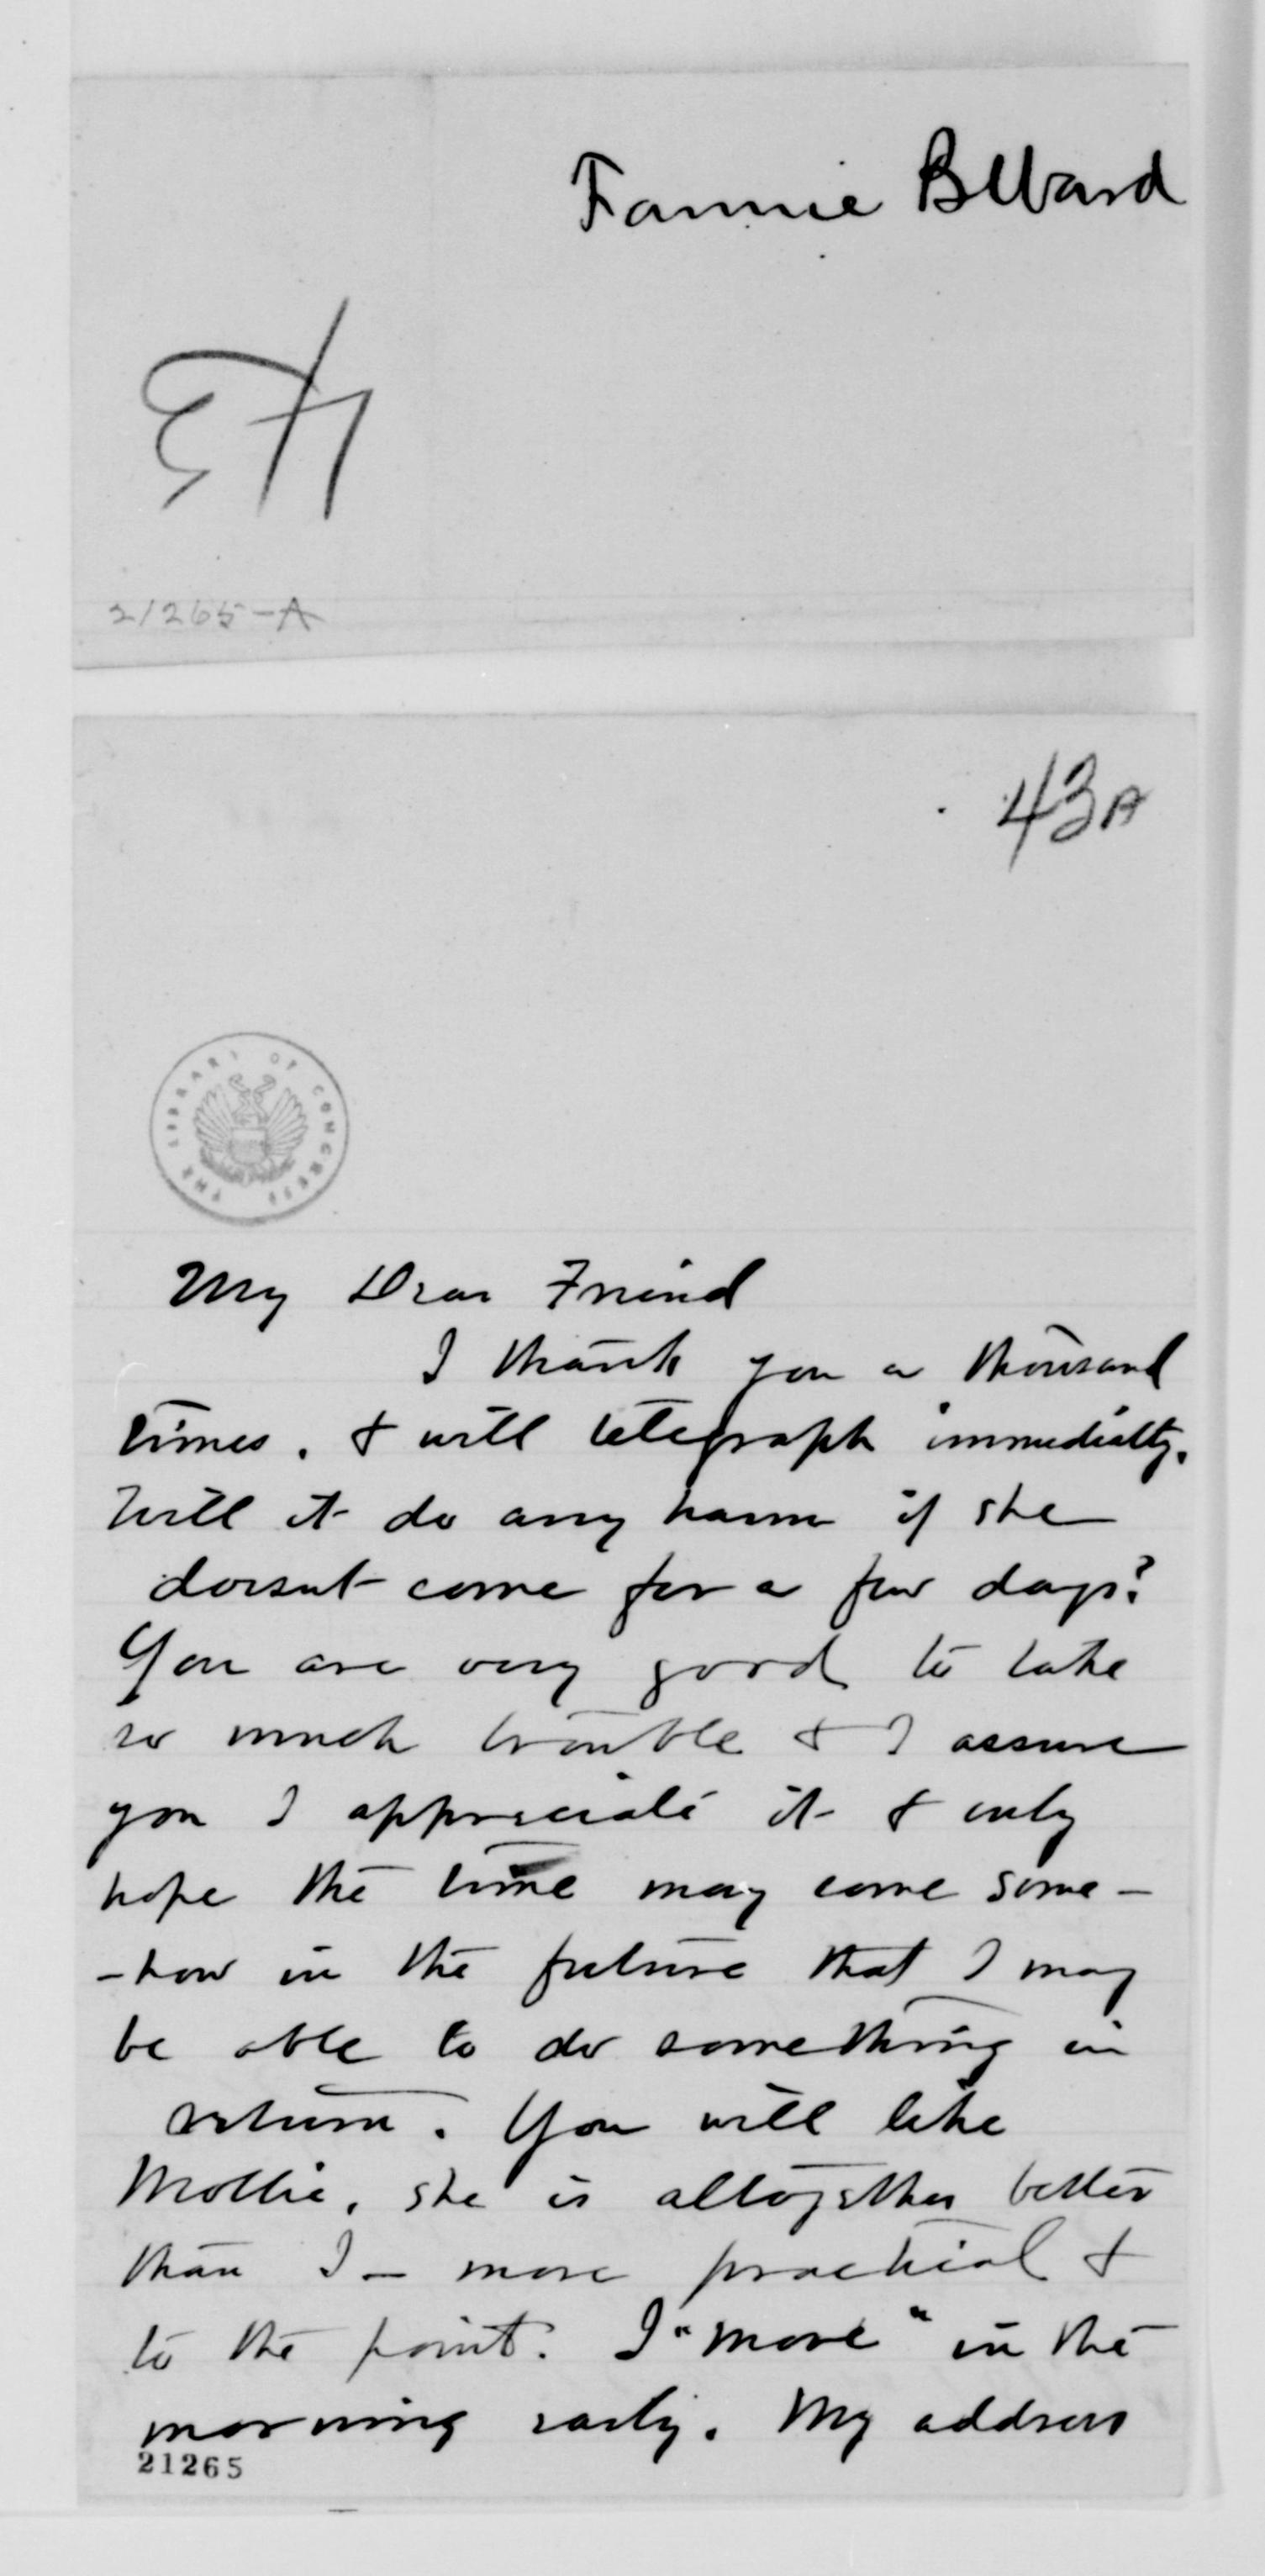 Fannie B Ward
21265-A
43A
THE LIBRARY OF CONGRESS
My Dear Friend
I thank you a thousand
times. & will telegraph immediatly.
Will it do any harm if she
doesnt come for a few days?
You are very good to take
so much trouble & I assure
you I appreciate it & only
hope the time may come some-
-how in the future that I may
be able to do something in
return. You will like
Mollie. she is altogether better
than I - more practical &
to the point. I "move" in the
morning early. My address
21265